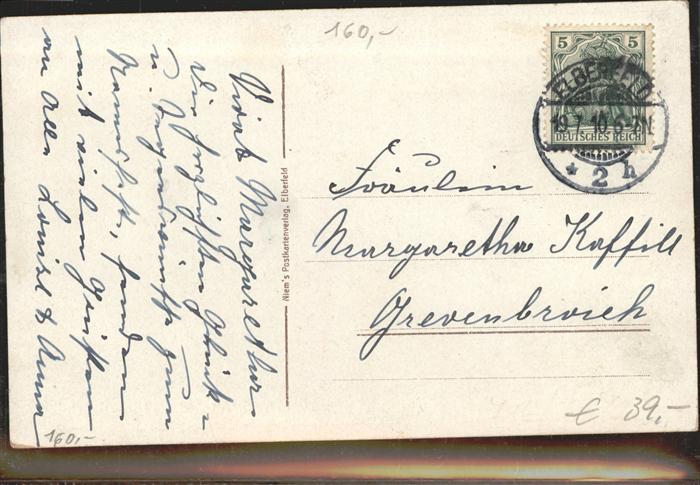 160,-
Vivat Margaretha
Die herzlichsten Glück-
u. Segenswünsche zum
Namensfeste, senden
mit vielen Grüßen
an Alle Louise & Anna
160,-
Niem's Postkartenverlag, Elberfeld
5 5
DEUTSCHES REICH
ELBERFELD
19.7.10. 6-7N
* 2 h
Fräulein
Margaretha Kaffill
Grevenbroich
€ 39,-